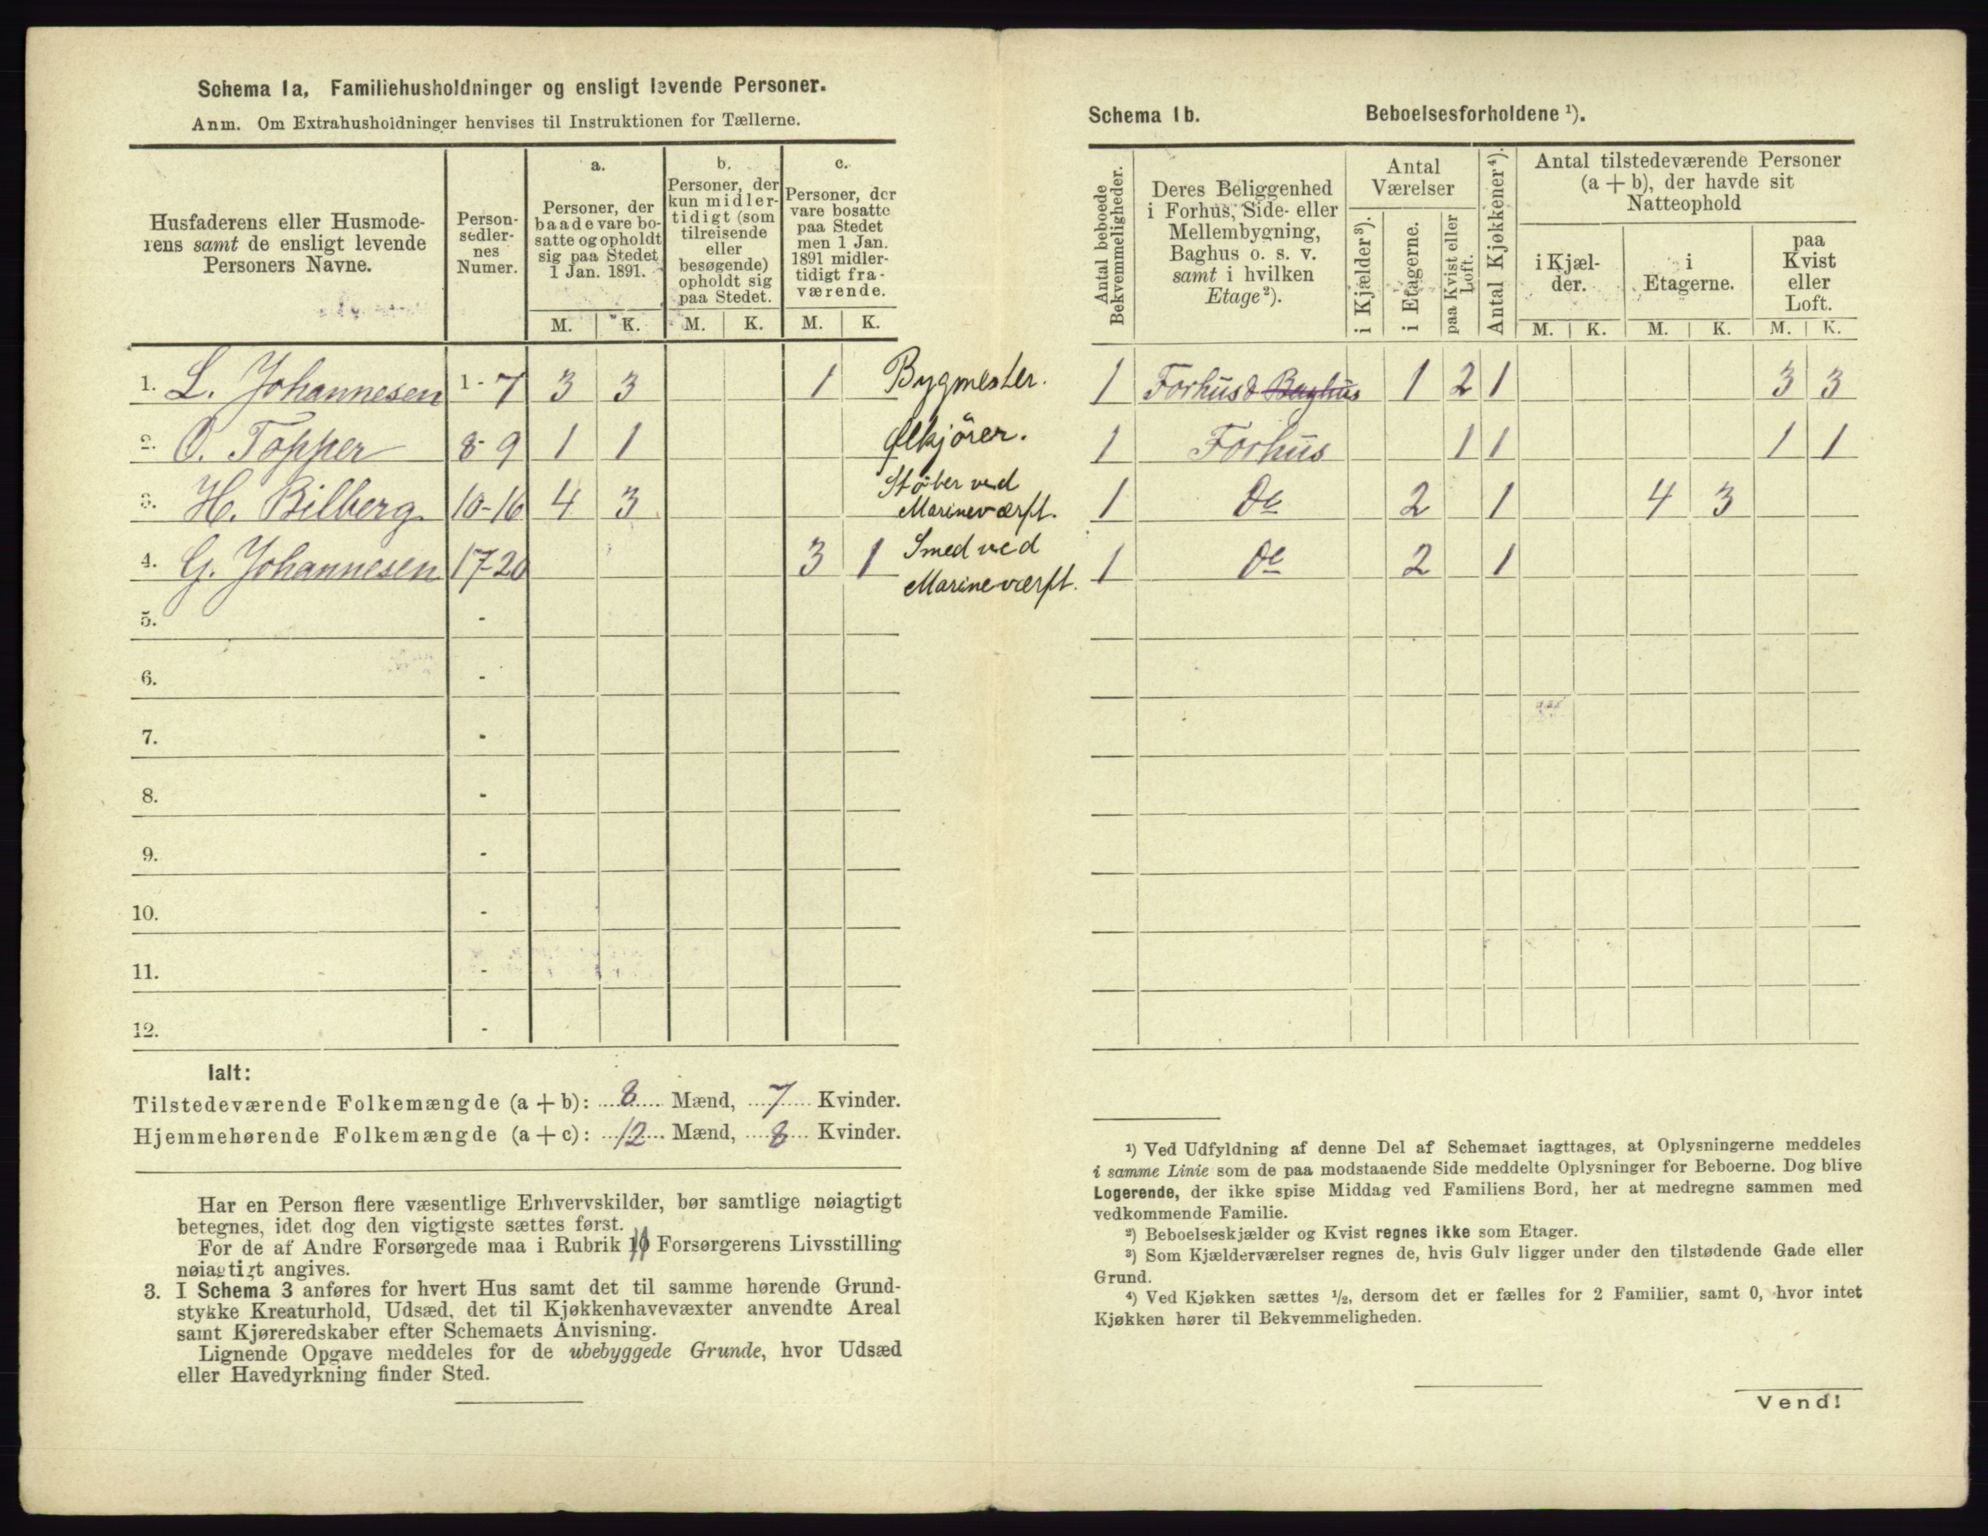 Schema 1a, Familiehusholdninger og ensligt levende Personer.
Anm. Om Extrahusholdninger henvises til Instruktionen for Tællerne.
Husfaderens eller Husmode-
rens samt de ensligt levende
Personers Navne.
Person-
sedler-
nes
Numer.
a.
Personer, der
baade vare bo-
satte og opholdt
sig paa Stedet
1 Jan. 1891.
b.
Personer, der
kun midler-
tidigt (som
tilreisende
eller
besøgende)
opholdt sig
paa Stedet.
c.
Personer, der
vare bosatte
paa Stedet
men 1 Jan.
1891 midler-
tidigt fra-
værende.
M. K. M. K. M. K.
1. L. Johannesen 1 - 7 3 3 1 Bygmester.
2. O. Topper 8-9 1 1 Ølkjörer.
3. H. Bilberg 10-16 4 3 Støber ved
Marineværft.
4. G. Johannesen 17-20 3 1 Smed ved
Marineværft.
5. -
6. -
7. -
8. -
9. -
10. -
11. -
12. -
Ialt:
Tilstedeværende Folkemængde (a + b): 8 Mænd, 7 Kvinder.
Hjemmehørende Folkemængde (a + c): 12 Mænd, 8 Kvinder.
Har en Person flere væsentlige Erhvervskilder, bør samtlige nøiagtigt
betegnes, idet dog den vigtigste sættes først.
For de af Andre Forsørgede maa i Rubrik Forsørgerens Livsstilling
nøiagtigt angives.
3. I Schema 3 anføres for hvert Hus samt det til samme hørende Grund-
stykke Kreaturhold, Udsæd, det til Kjøkkenhavevæxter anvendte Areal
samt Kjøreredskaber efter Schemaets Anvisning.
Lignende Opgave meddeles for de ubebyggede Grunde, hvor Udsæd
eller Havedyrkning finder Sted.
Schema 1b. Beboelsesforholdene ¹).
Antal beboede
Bekvemmeligheder.
Deres Beliggenhed
i Forhus, Side- eller
Mellembygning,
Baghus o. s. v.
samt i hvilken
Etage²).
Antal
Værelser
i Kjælder³).
i Etagerne.
paa Kvist eller
Loft.
Antal Kjøkkener⁴).
Antal tilstedeværende Personer
(a + b), der havde sit
Natteophold
i Kjæl-
der.
i
Etagerne.
paa
Kvist
eller
Loft.
M. K. M. K. M. K.
1 Forhus & Baghus 1 2 1 3 3
1 Forhus 1 1 1 1
1 Do 2 1 4 3
1 Do 2 1
¹) Ved Udfyldning af denne Del af Schemaet iagttages, at Oplysningerne meddeles
i samme Linie som de paa modstaaende Side meddelte Oplysninger for Beboerne. Dog blive
Logerende, der ikke spise Middag ved Familiens Bord, her at medregne sammen med
vedkommende Familie.
²) Beboelseskjælder og Kvist regnes ikke som Etager.
³) Som Kjælderværelser regnes de, hvis Gulv ligger under den tilstødende Gade eller
Grund.
⁴) Ved Kjøkken sættes ½, dersom det er fælles for 2 Familier, samt 0, hvor intet
Kjøkken hører til Bekvemmeligheden.
Vend!